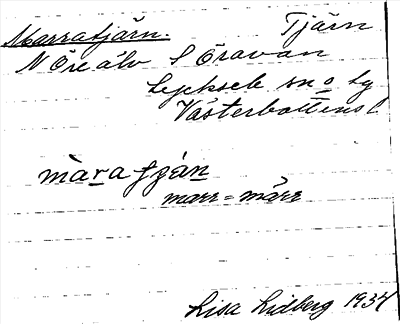 Marratjärn. Tjärn
N Öreälv S Öravan
Lycksele sn o lg
Västerbottens l
màra ʃzä́n
marr = märr
Lisa Lidberg 1934